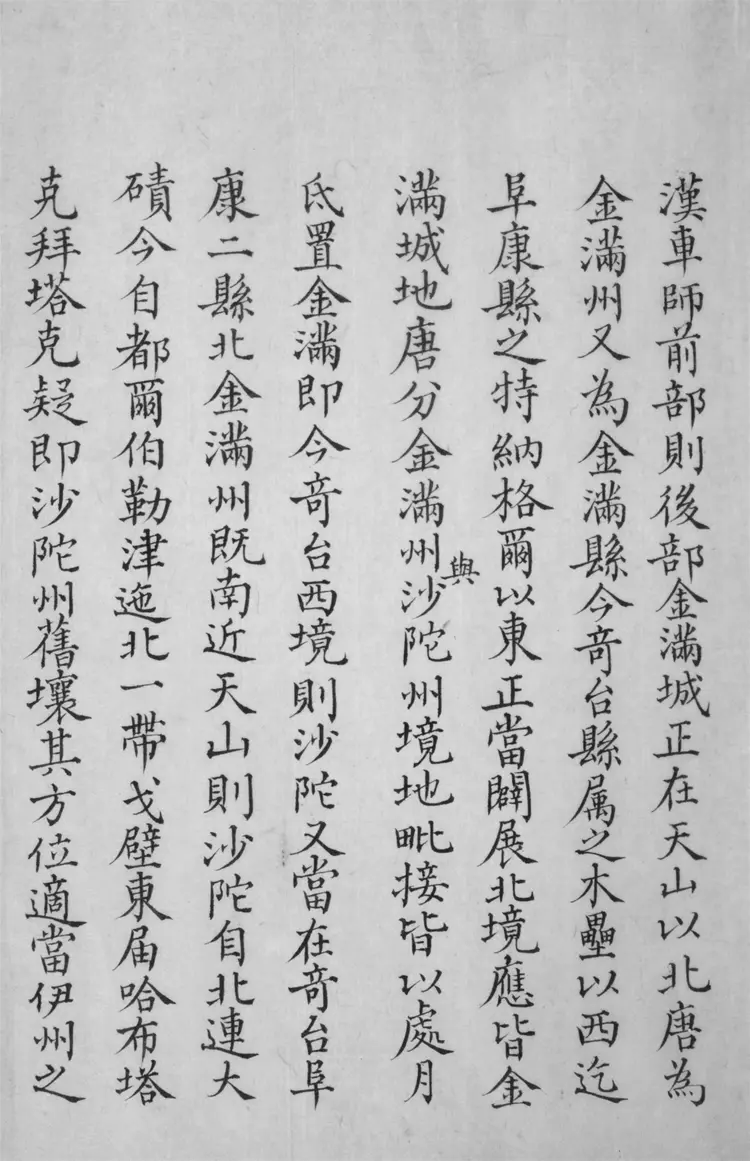 漢車師前部則後部金滿城正在天山以北唐為
金滿州又為金滿縣今竒台縣属之木壘以西迄
阜康縣之特納格爾以東正當闢展北境應皆金
滿城地唐分金滿州與沙陀州境地毗接皆以處月
氐置金滿即今竒台西境則沙陀又當在竒台阜
康二縣北金滿州既南近天山則沙陀自北連大
磧今自都爾伯勒津迤北一帶戈壁東届哈布塔
克拜塔克疑即沙陀州舊壤其方位適當伊州之